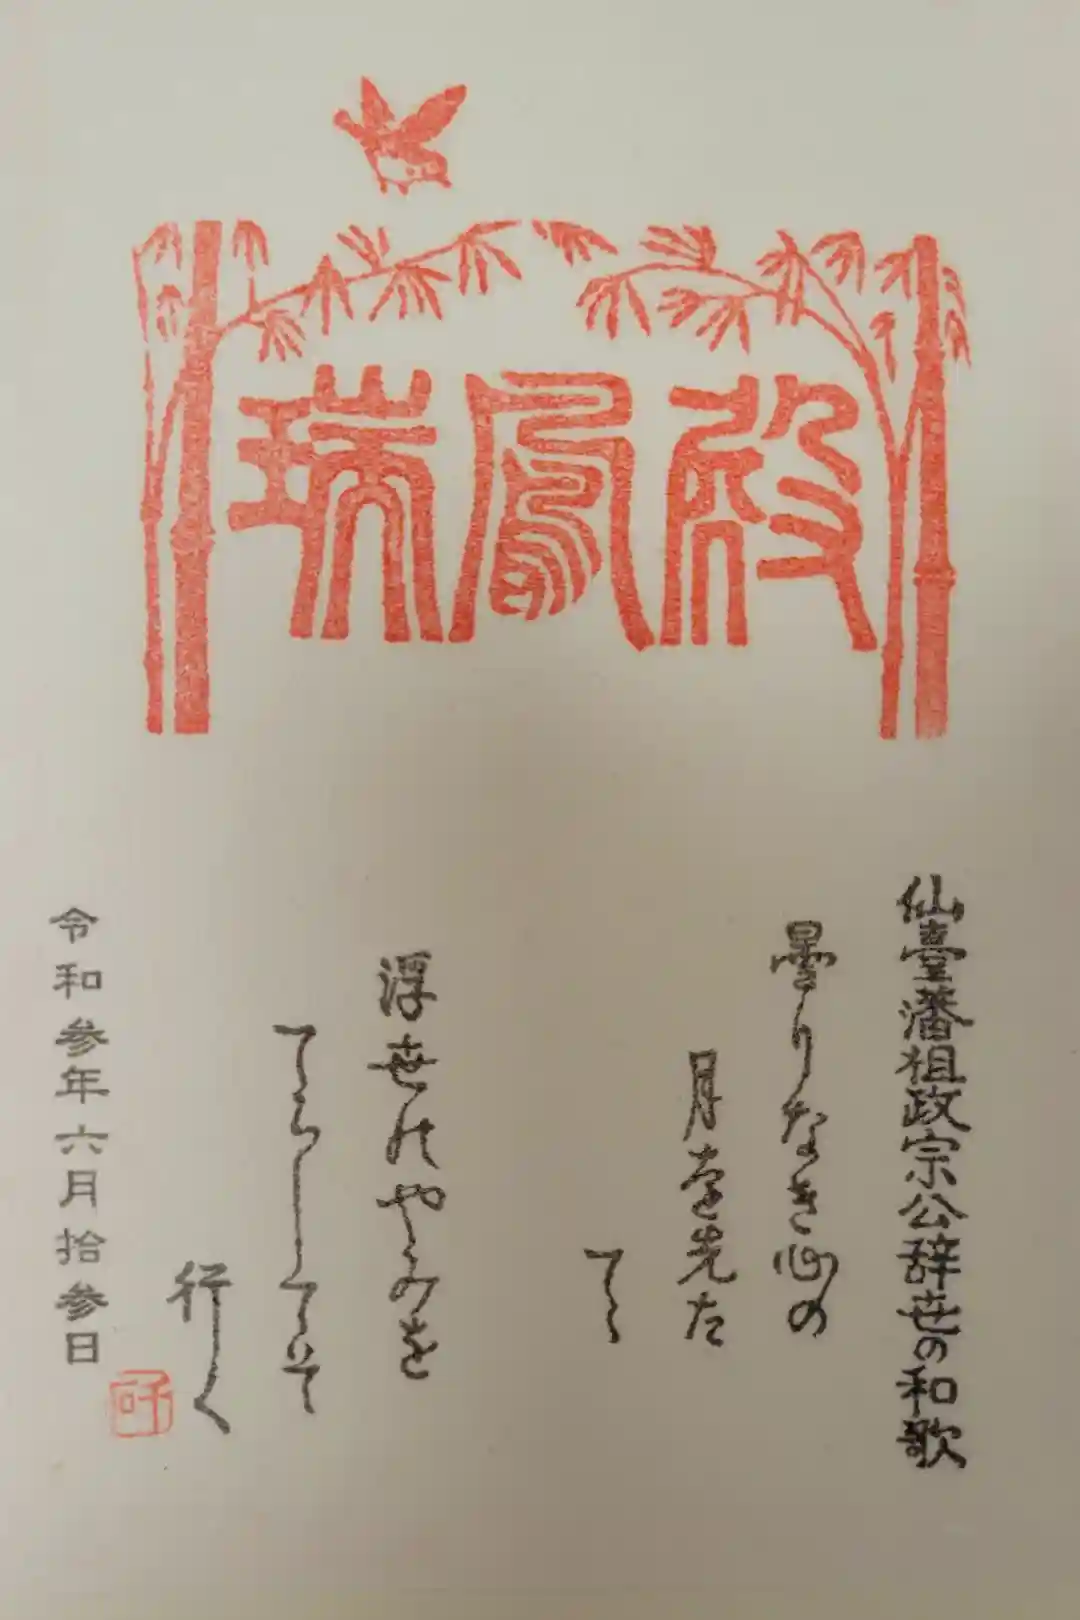 瑞鳳殿
仙臺藩祖政宗公辞世の和歌
曇りなき心の
月を先た
てゝ
浮世のやみを
てらしてそ
行く
令和参年六月拾参日